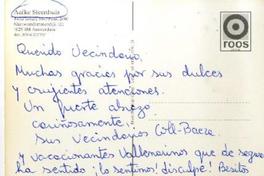 Aafke Steenhuis
1025 HM Amsterdam
roos
Querido Vecindario,
Muchas gracias por sus dulces
y crujientes atenciones.
Un fuerte abrazo
cariñosamente,
sus Vecindarios Coll-Baeza
y vacacionantes Vallenarinos que de seguro
ha sentido ¡lo sentimos! ¡disculpe! Besitos